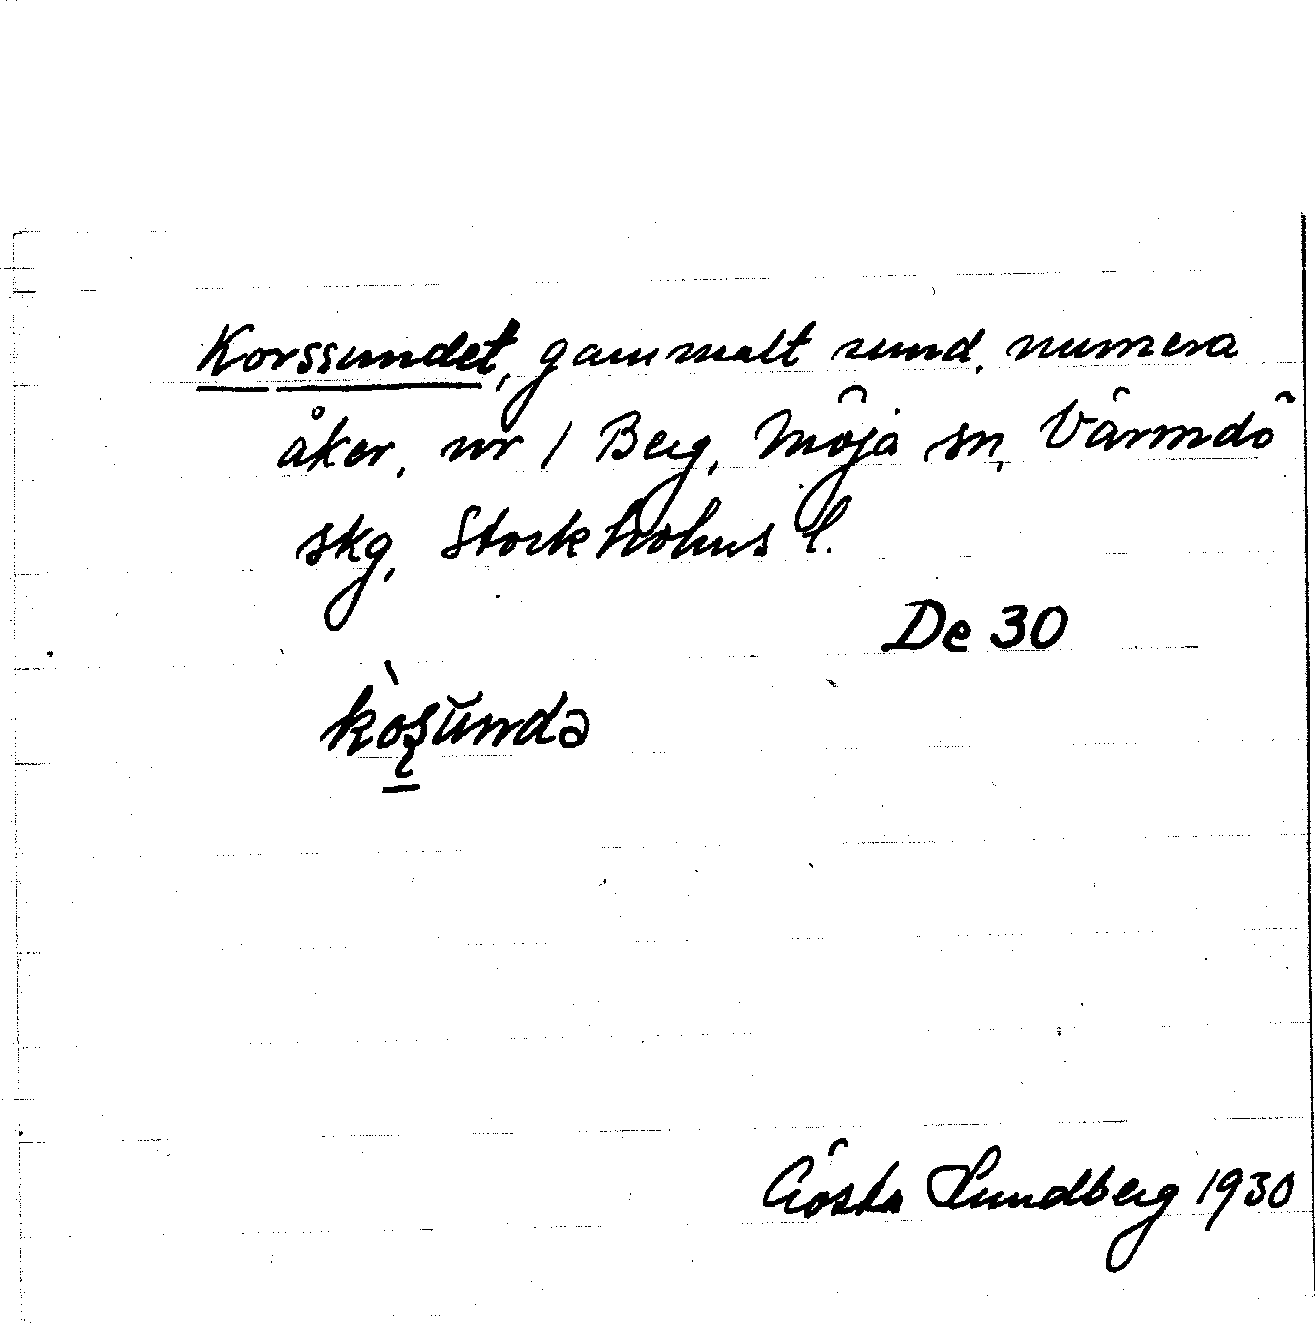 Korssundet, gammalt sund, numera
åker, nr 1 Berg, Möja sn, Värmdö
skg, Stockholms l.
De 30
kòşŭndə
Gösta Lundberg 1930